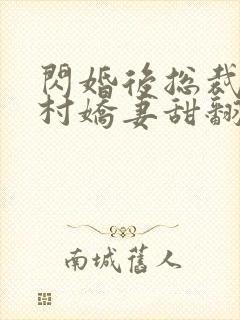 閃婚後総裁
村嬌妻甜翻
南城舊人